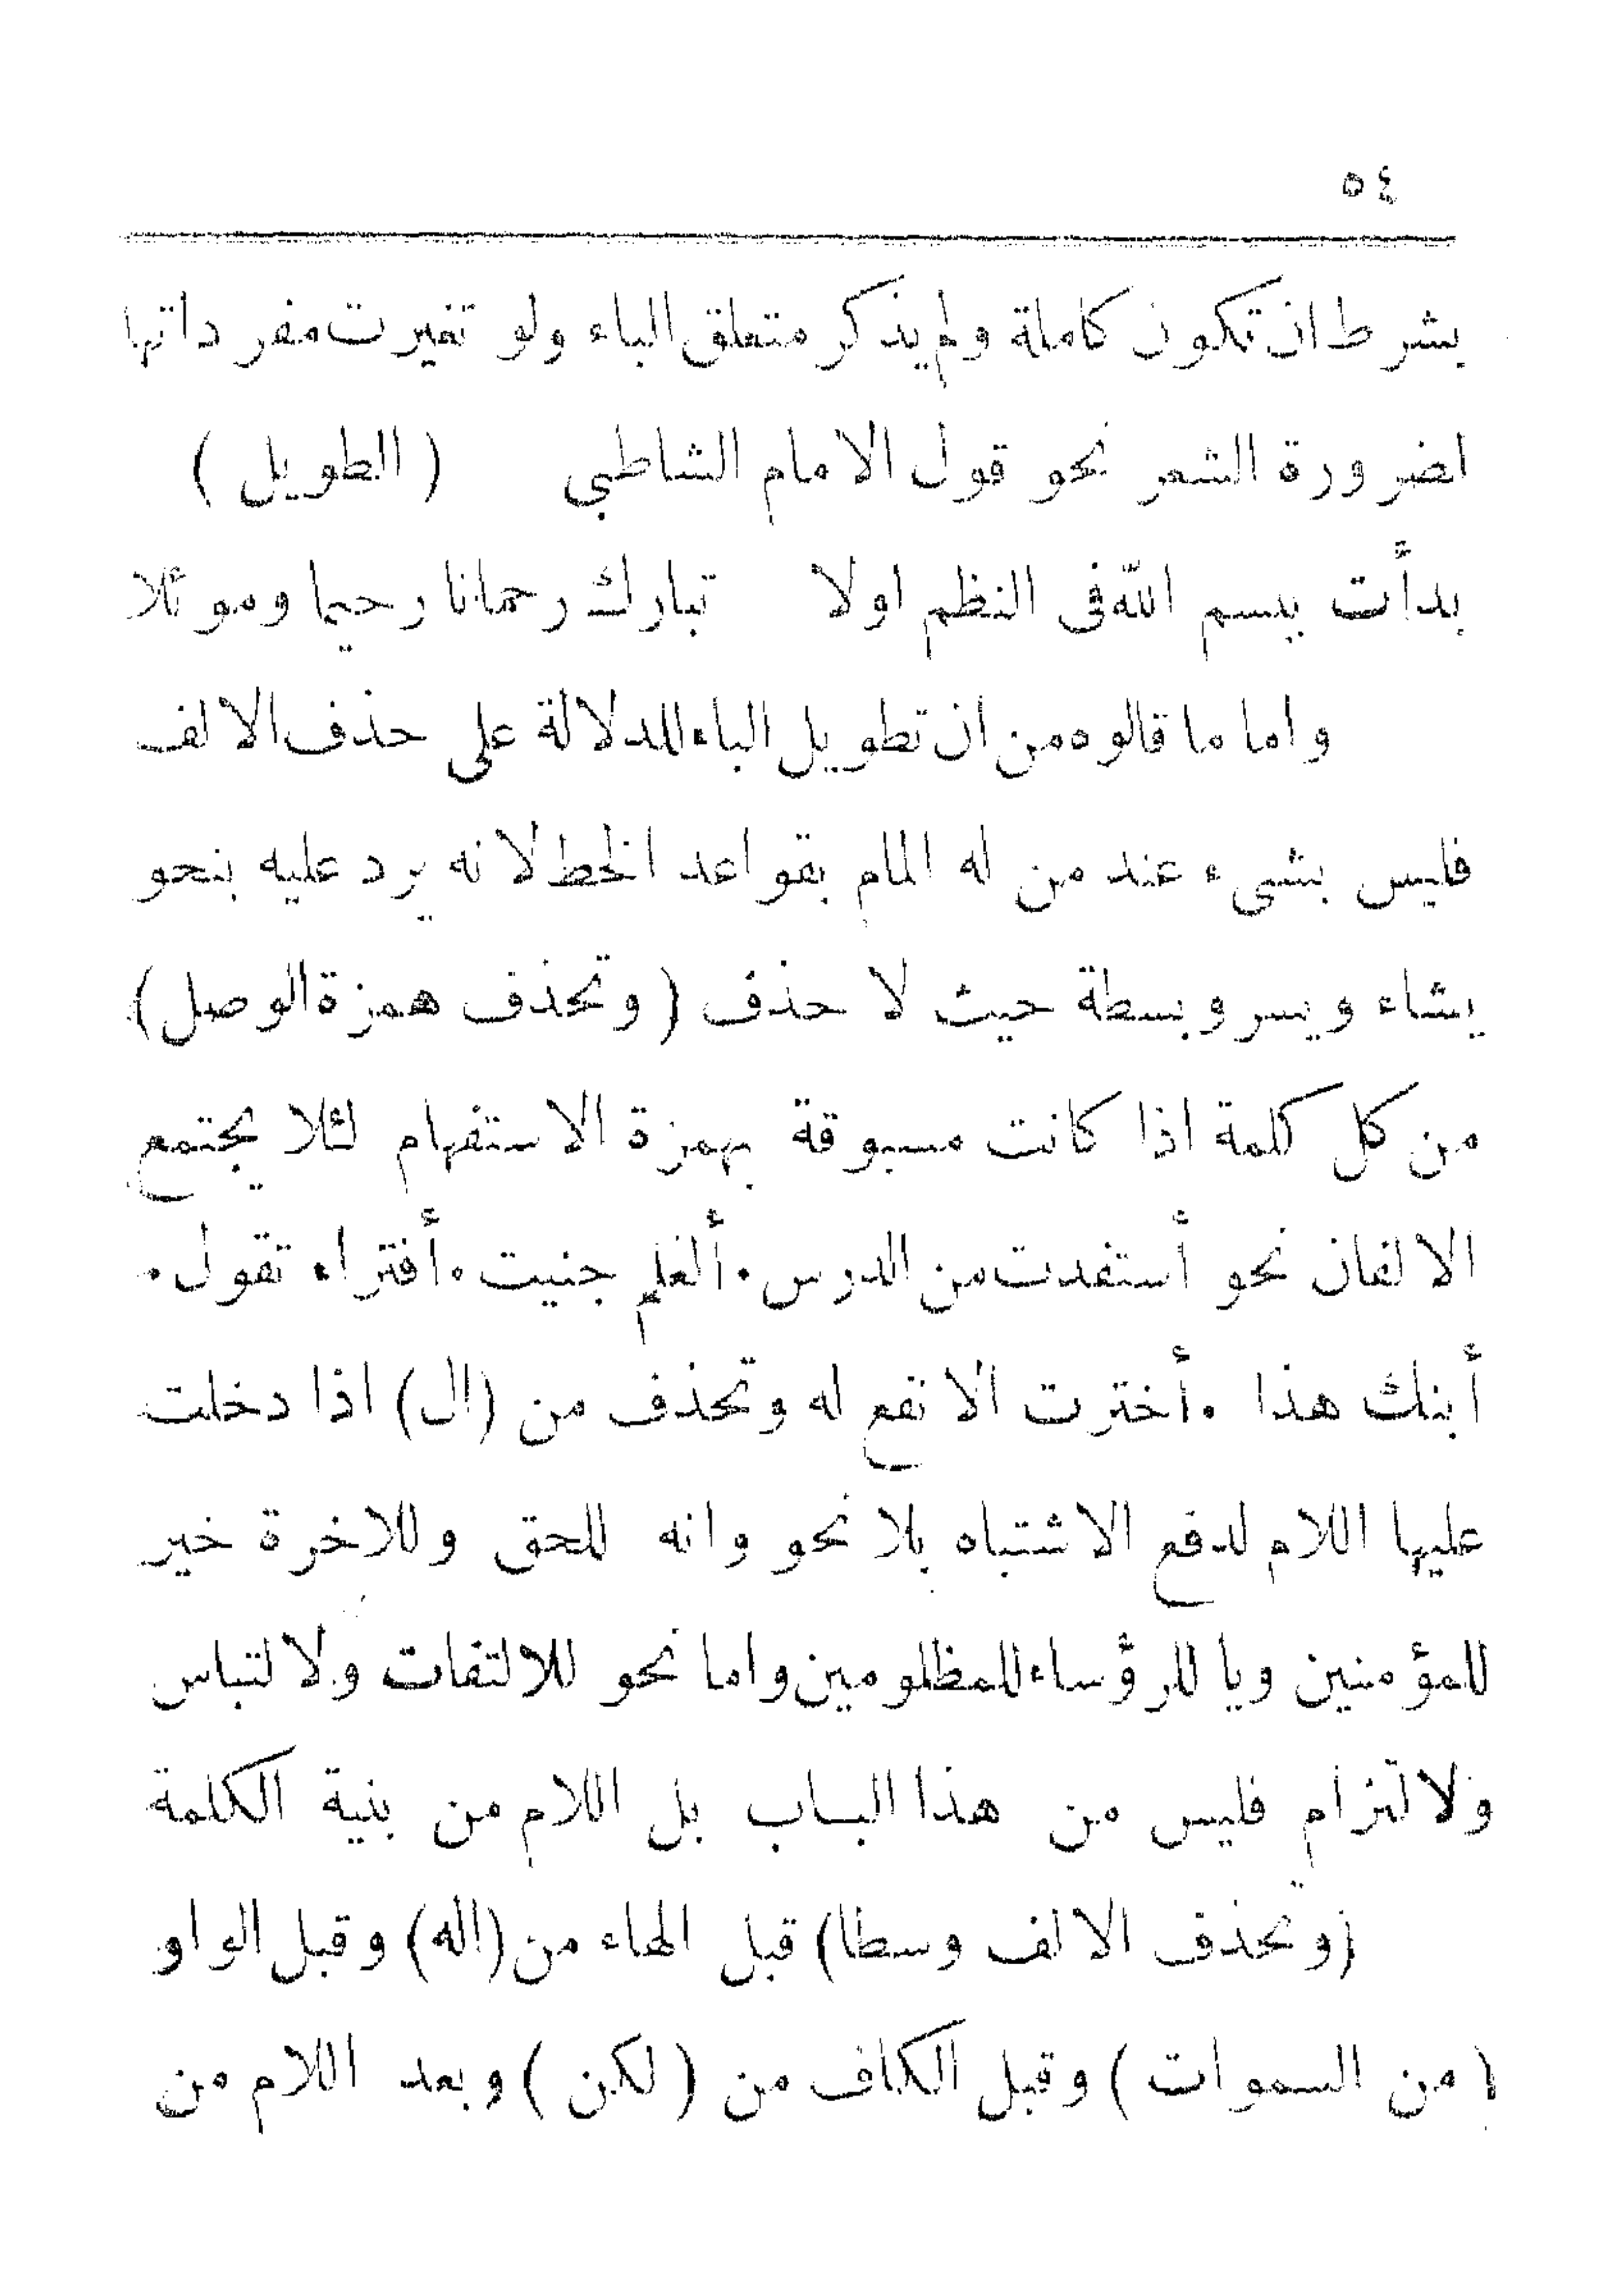 ٥٤
بشرط ان تكون كاملة ولم يذكر متعلق الباء ولو تغيرت مفرداتها
لضرورة الشعر نحو قول الامام الشاطبي (الطويل)
بدأت ببسم الله فى النظم اولا تبارك رحمانا رحيما وموئلا
واما ما قالوه من ان تطويل الباء للدلالة على حذف الالف
فليس بشىء عند من له المام بقواعد الخط لانه يرد عليه بنحو
يشاء ويسر وبسطة حيث لا حذف (وتحذف همزة الوصل)
من كل كلمة اذا كانت مسبوقة بهمزة الاستفهام لئلا يجتمع
الالفان نحو أستفدت من الدرس. ألغلم جنيت. أفتراء تقول.
أبنك هذا. أخترت الانفع له وتحذف من (ال) اذا دخلت
عليها اللام لدفع الاشتباه بلا نحو وانه للحق وللاخرة خير
للمؤمنين ويا للرؤساء للمظلومين واما نحو للالتفات ولالتباس
ولالتزام فليس من هذا الباب بل اللام من بنية الكلمة
(وتحذف الالف وسطا) قبل الهاء من (اله) وقبل الواو
(من السموات) وقبل الكاف من (لكن) وبعد اللام من